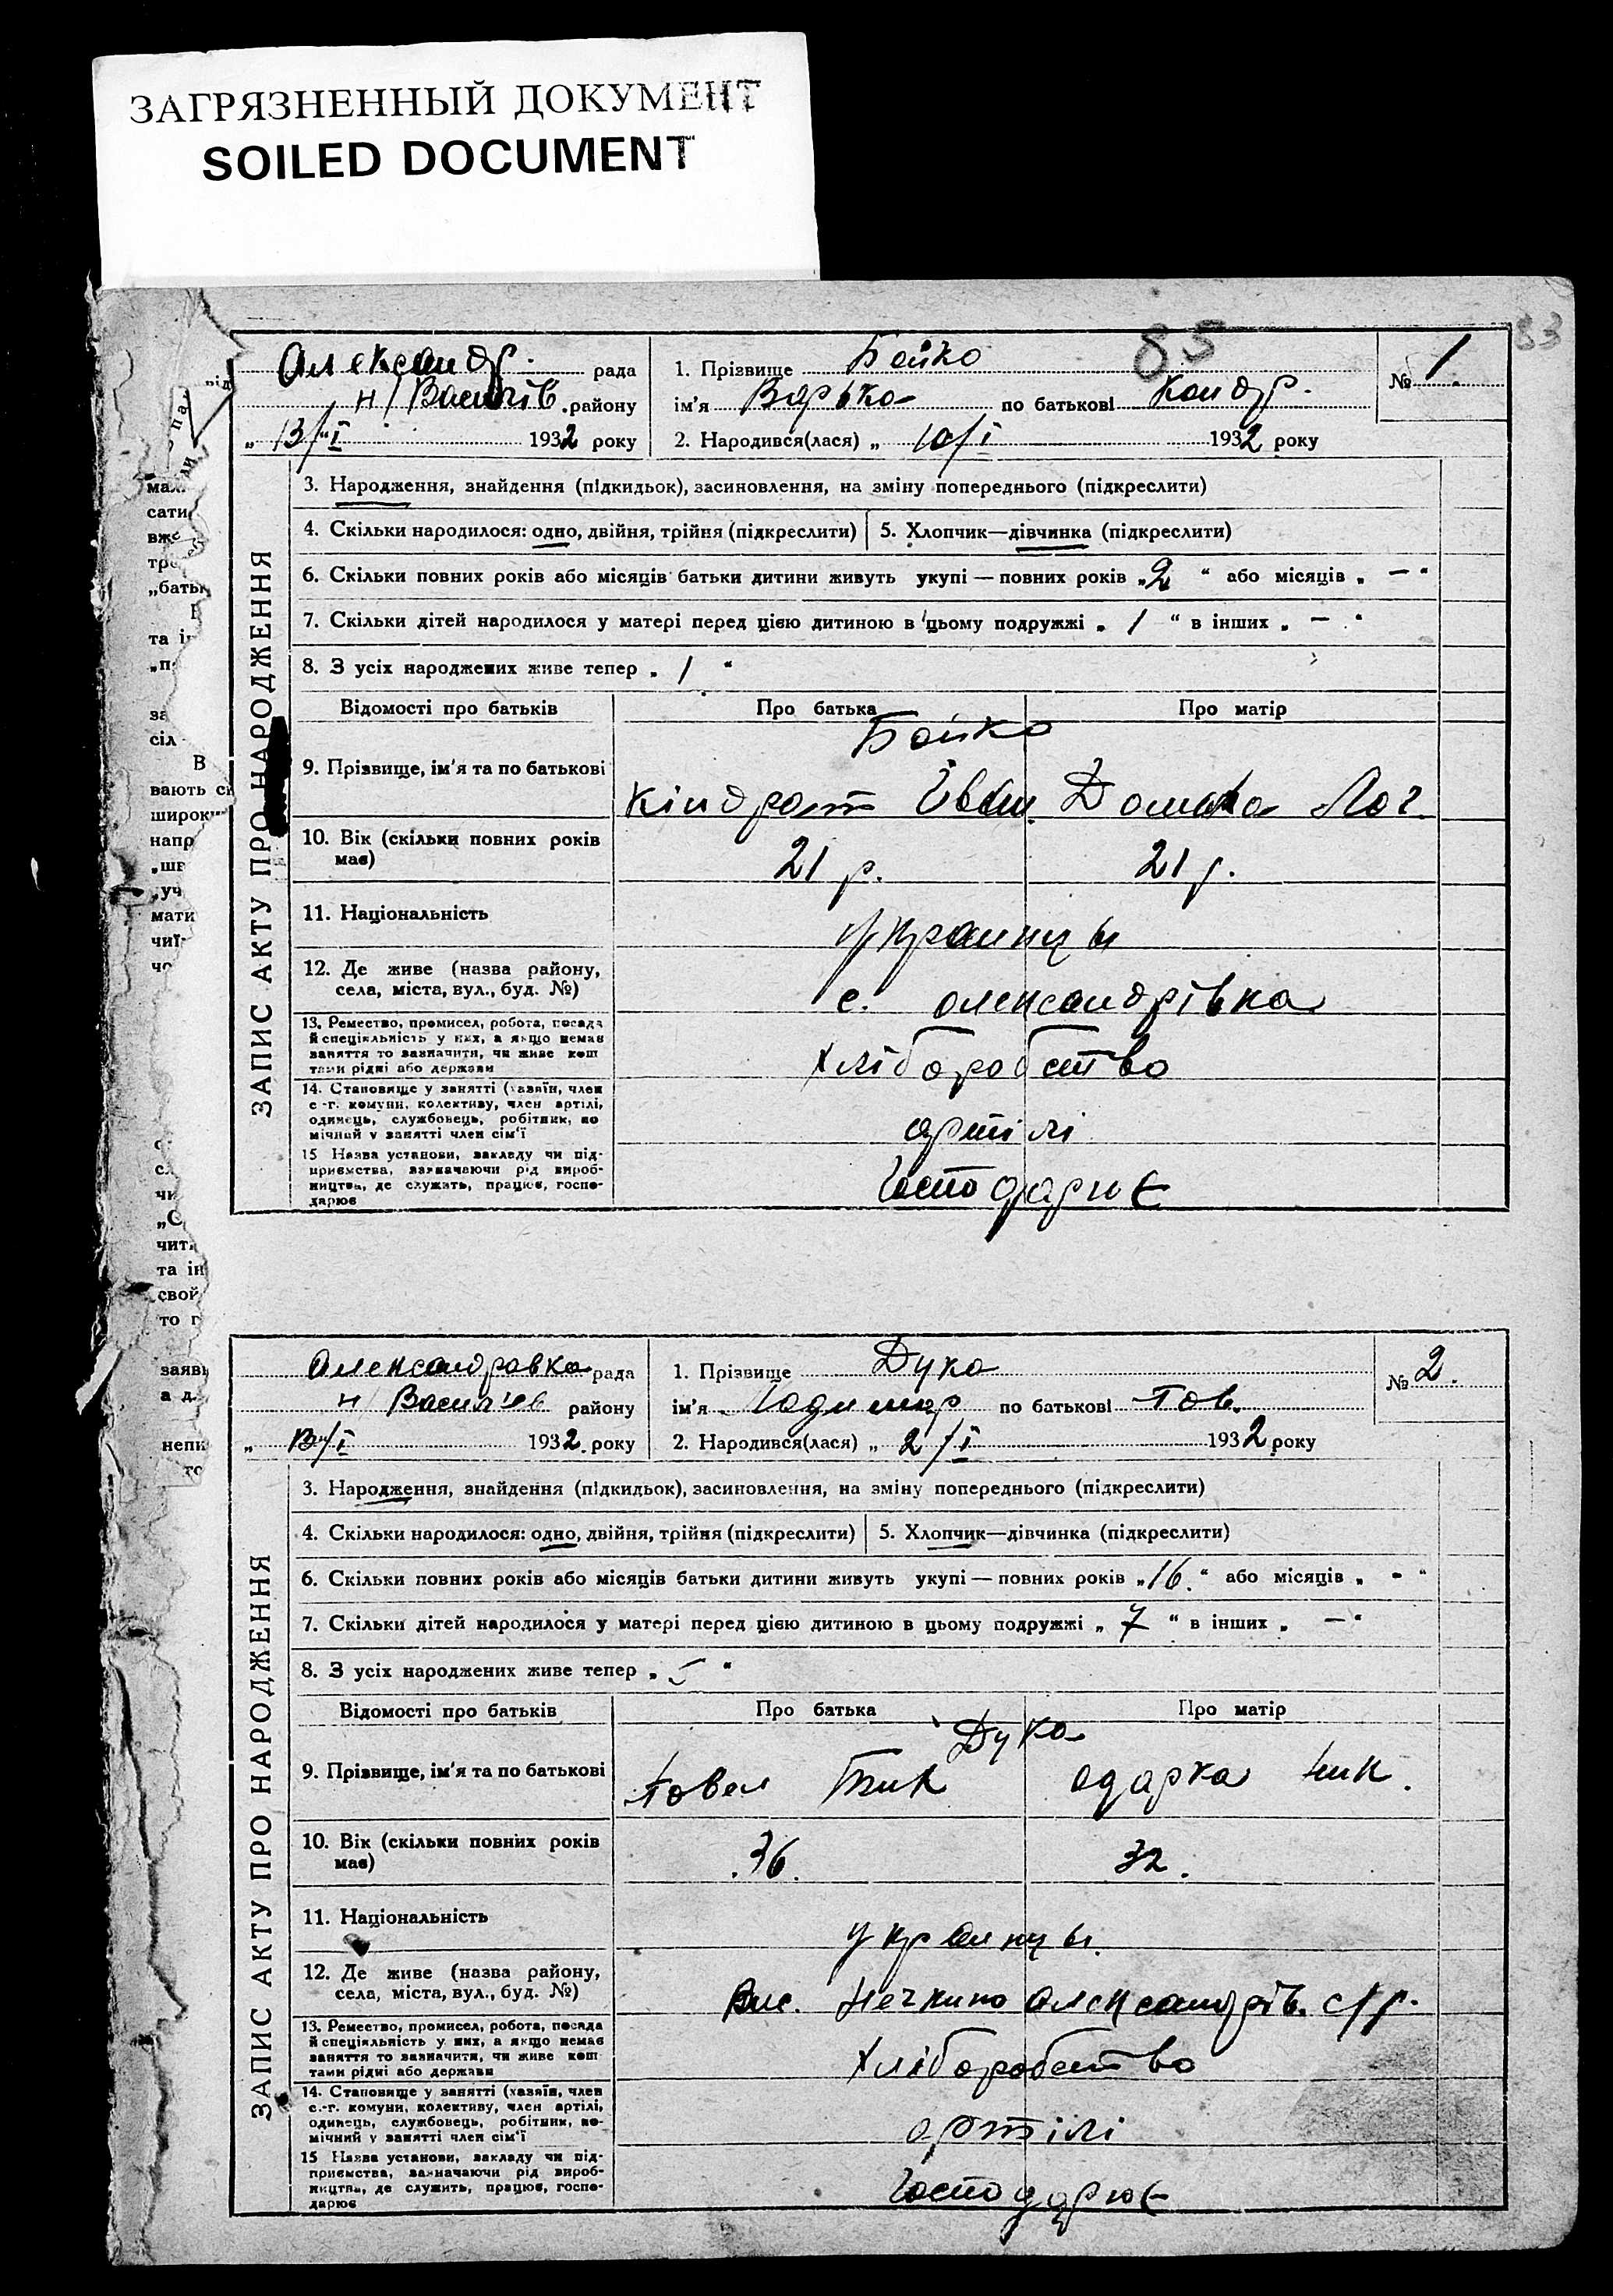 ЗАГРЯЗНЕННЫЙ ДОКУМЕНТ
SOILED DOCUMENT
83
85
Александр. рада
Н/Васил'їв. району
„ 13/I 1932 року
1. Прізвище Бойко
ім'я Варька по батькові Кондр.
2. Народився(лася) „ 10/I 1932 року
№ 1.
ЗАПИС АКТУ ПРО НАРОДЖЕННЯ
3. Народження, знайдення (підкидьок), засиновлення, на зміну попереднього (підкреслити)
4. Скільки народилося: одно, двійня, трійня (підкреслити)
5. Хлопчик—дівчинка (підкреслити)
6. Скільки повних років або місяців батьки дитини живуть укупі — повних років „2 “ або місяців „ — “
7. Скільки дітей народилося у матері перед цією дитиною в цьому подружжі „ 1 “ в інших „ — “
8. З усіх народжених живе тепер „ 1 “
Відомості про батьків Про батька Про матір
Бойко
9. Прізвище, ім'я та по батькові
Кіндрат Іван. Домаха Лог.
10. Вік (скільки повних років
має)
21 р. 21 р.
11. Національність
Украинцы
12. Де живе (назва району,
села, міста, вул., буд. №)
с. Олександрівка
13. Ремество, промисел, робота, посада
й спеціяльність у них, а якщо немає
заняття то зазначити, чи живе кош
тами рідні або держави
Хліборобство
14. Становище у занятті (хазяїн, член
с.-г. комуни, колективу, член артілі,
одинець, службовець, робітник, по
мічний у занятті член сім'ї
артілі
15 Назва установи, закладу чи під-
приємства, зазначаючи рід вироб-
ництва, де служить, працює, госпо-
дарює
Господарює
Александровка рада
Н/Васил'їв району
„ 13/I 1932 року
1. Прізвище Дука
ім'я по батькові Пов.
2. Народився(лася) „ 2/I 1932 року
№ 2.
ЗАПИС АКТУ ПРО НАРОДЖЕННЯ
3. Народження, знайдення (підкидьок), засиновлення, на зміну попереднього (підкреслити)
4. Скільки народилося: одно, двійня, трійня (підкреслити)
5. Хлопчик—дівчинка (підкреслити)
6. Скільки повних років або місяців батьки дитини живуть укупі — повних років „16.“ або місяців „ - “
7. Скільки дітей народилося у матері перед цією дитиною в цьому подружжі „ 7 “ в інших „ — “
8. З усіх народжених живе тепер „ 5 “
Відомості про батьків Про батька Про матір
Дука
9. Прізвище, ім'я та по батькові
Повел Одарка Ник.
10. Вік (скільки повних років
має)
36. 32.
11. Національність
Украинцы.
12. Де живе (назва району,
села, міста, вул., буд. №)
Нечкино Олександрів. с/р.
13. Ремество, промисел, робота, посада
й спеціяльність у них, а якщо немає
заняття то зазначити, чи живе кош
тами рідні або держави
Хліборобство
14. Становище у занятті (хазяїн, член
с.-г. комуни, колективу, член артілі,
одинець, службовець, робітник, по-
мічний у занятті член сім'ї
артілі
15 Назва установи, закладу чи під-
приємства, зазначаючи рід вироб-
ництва, де служить, працює, госпо-
дарює
Господарює